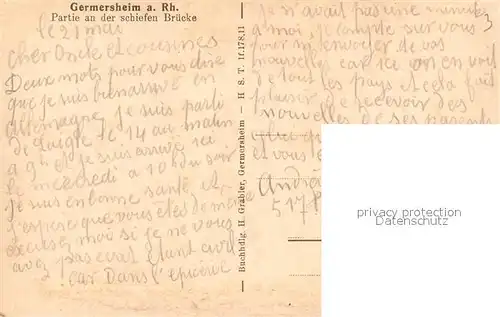 Germersheim a. Rh.
Partie an der schiefen Brücke
le 21 mai
cher Oncle et cousines
Deux mots pour vous dire
que je suis bien arrivé en
allemagne, je suis parti
de Laigle le 14 au matin
a 9h et je suis arrivé ici
le mercredi a 10h du soir
je suis en bonne santé, et
j'espere que vous êtes de meme
excusez moi si je ne vous
avez pas ecrit étant civil
car Dans l'épicerie
je n'avait pas une minute
a moi, je compte sur vous
pour m'envoyer de vos
nouvelles car ici on en voit
de tout les pays et cela fait
plaisir de recevoir des
nouvelles de ses parents
et vous
André
5178
Buchhdlg. H. Gräbler, Germersheim — H S. T. 1f.178.11
Copyright protected
Datensicherung